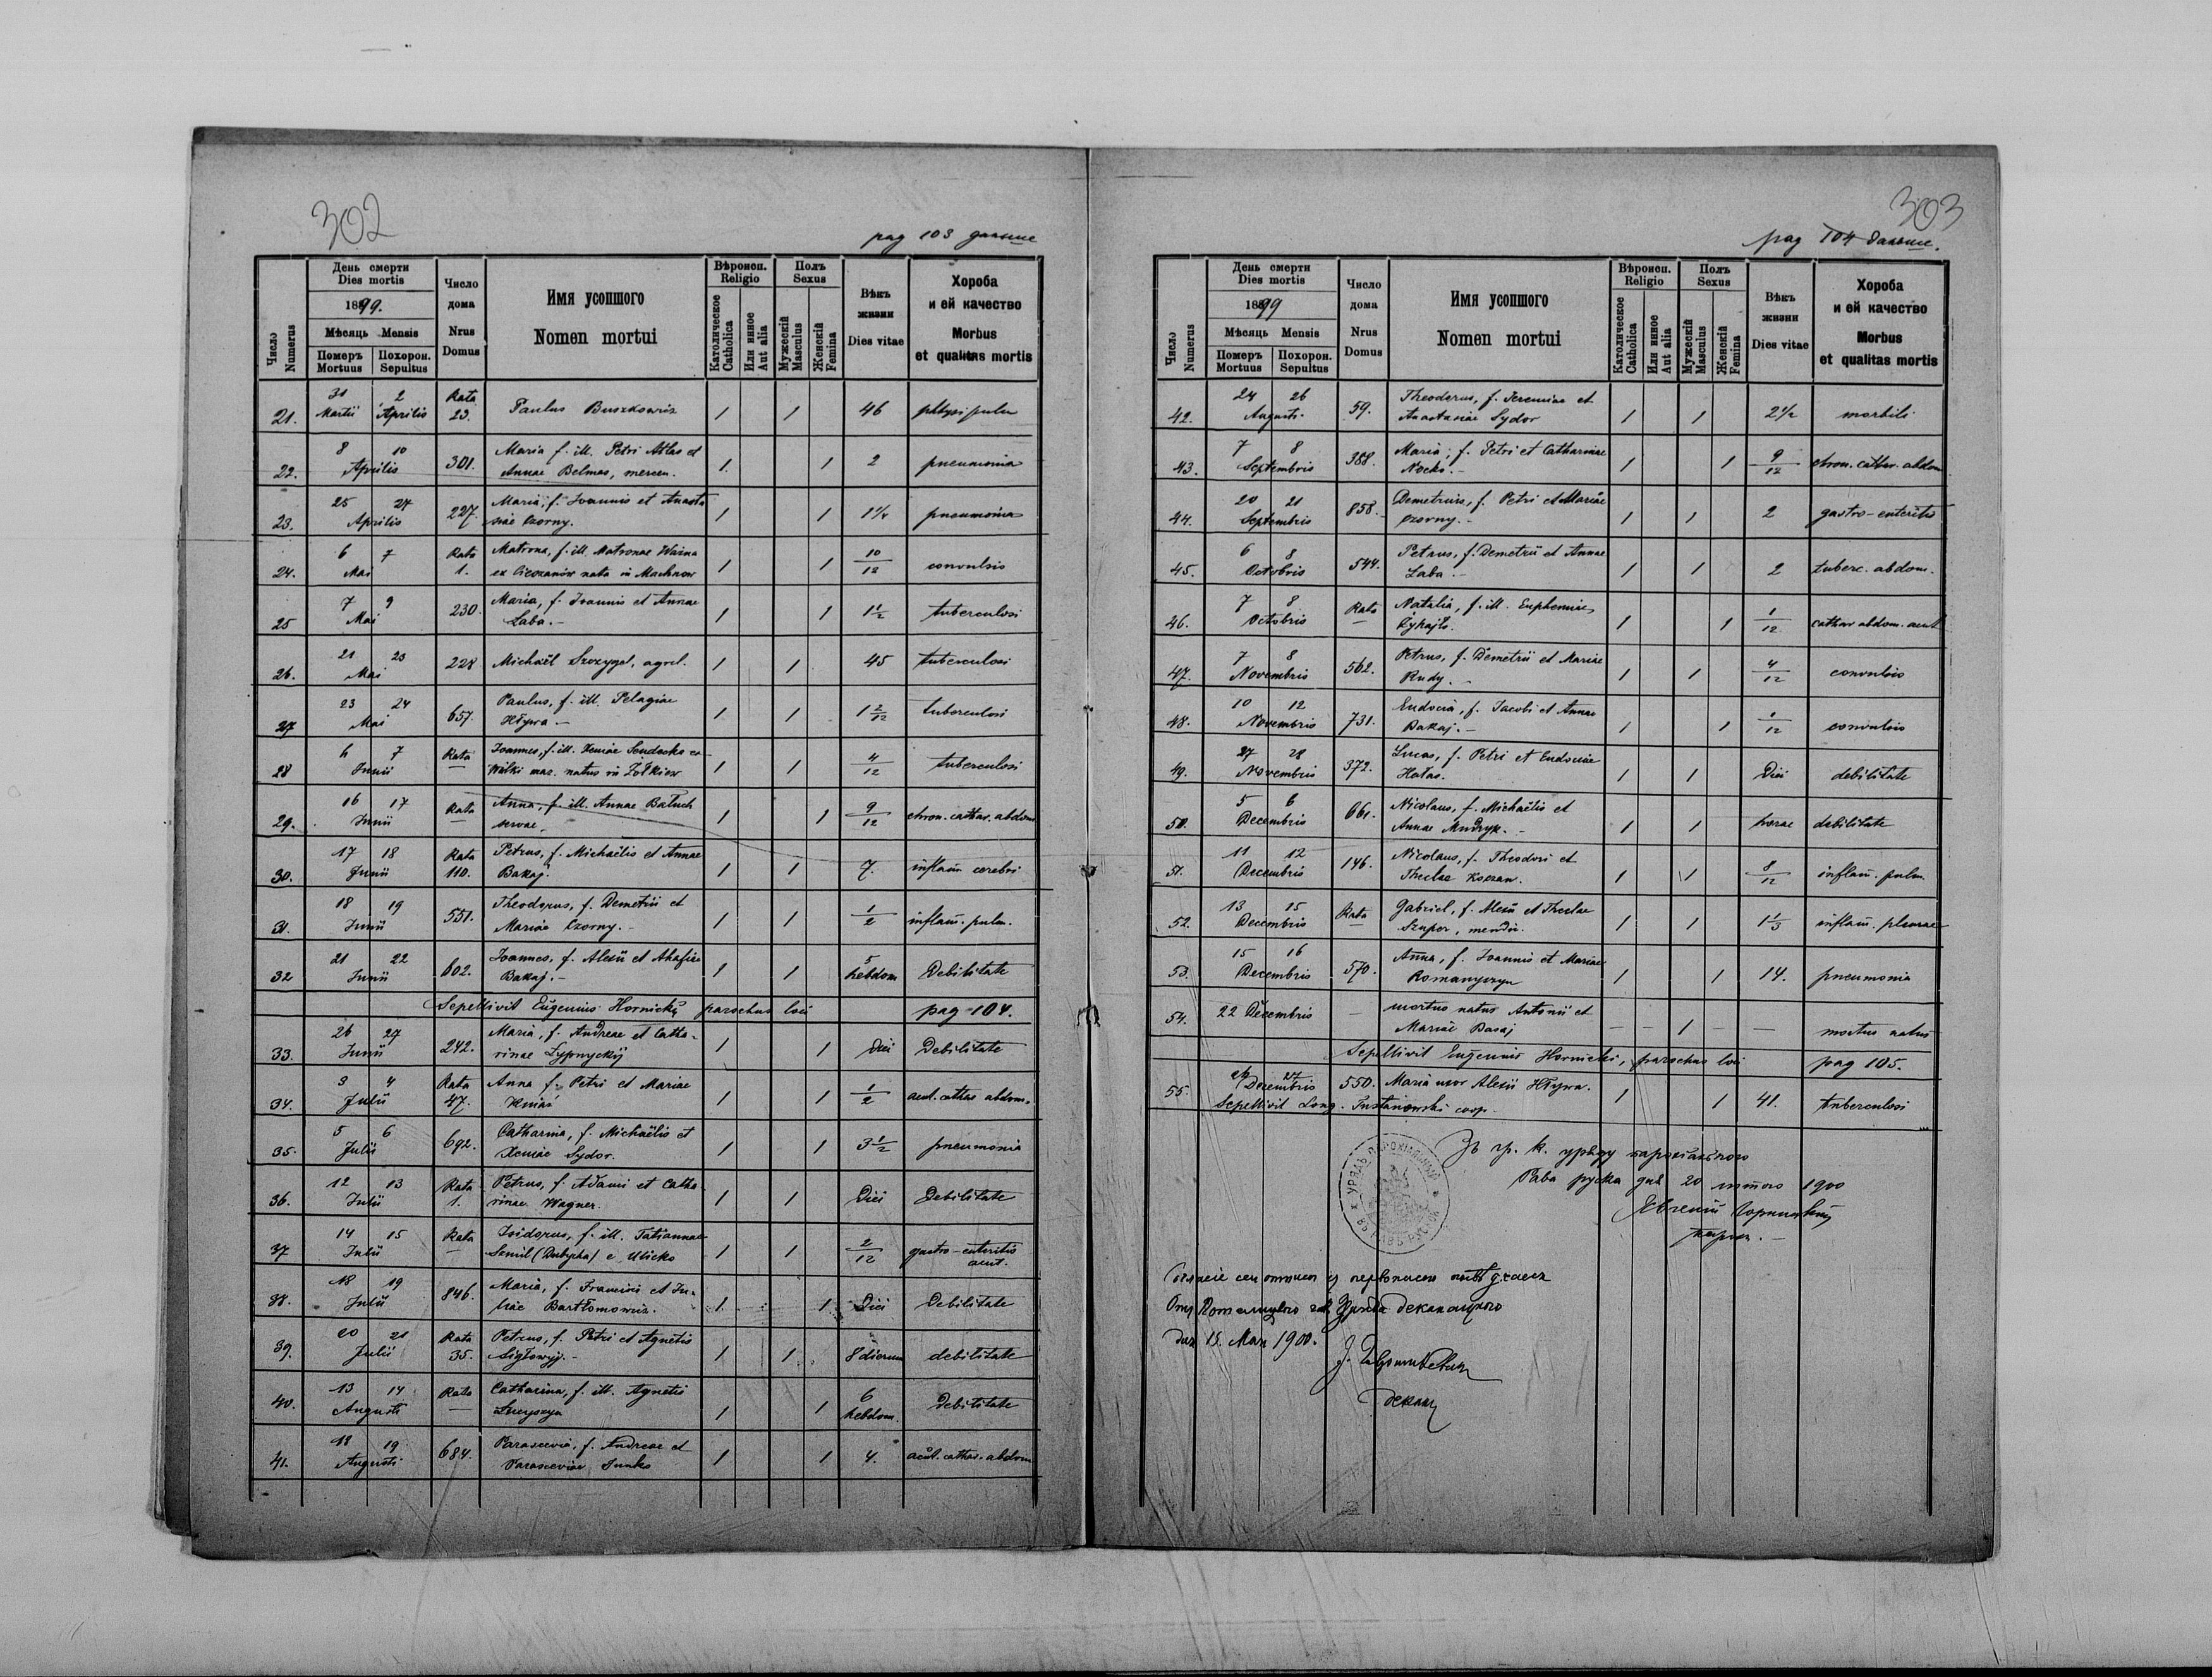 302
pag 103 дальше
Число Numerus
День смерти Dies mortis
1899.
Мѣсяць Mensis
Померъ Mortuus
Похорон. Sepultus
Число дома Nrus Domus
Имя усопшого Nomen mortui
Вѣроисп. Religio
Католическое Catholica
Или инное Aut alia
Полъ Sexus
Мужескій Masculus
Женскій Femina
Вѣкъ жизни Dies vitae
Хороба и ей качество Morbus et qualitas mortis
21. 31 Martii 2 Aprilis Rata 23. Paulus Buszkowicz 1 1 46 phtysi pulm
22. 8 10 Aprilis 301. Maria f. ill. Petri Atlas et
Annae Belmas, mercen. 1. 1 2 pneumonia
23. 25 27 Aprilis 227. Maria, f. Joannis et Anasta
siae Czorny. 1 1 1 1/4 pneumonia
24. 6 7 Mai Rata 1. Matrona, f. ill. Matronae
ex Cieszanów nata in Machnow 1 1 10/12 convulsio
25 7 9 Mai 230. Maria, f. Joannis et Annae
Łaba. - 1 1 1 1/2 tuberculosi
26. 21 23 Mai 228 Michaël Szczygel, agrel. 1 1 45 tuberculosi
27 23 24 Mai 657. Paulus, f. ill. Pelagiae
Hływa - 1 1 1 2/12 tuberculosi
28 6 7 Junii Rata Joannes, f. ill. Xeniae Sendecka ex
Wilki maz. natus in Żółkiew 1 1 4/12 tuberculosi
29. 16 17 Junii Rata Anna, f. ill. Annae Bałuch
servae. 1 1 9/12 chron. cathar. abdom
30. 17 18 Junii Rata 110. Petrus, f. Michaëlis et Annae
Bakaj. 1 1 7. inflam cerebri
31. 18 19 Junii 551. Theodorus, f. Demetrii et
Mariae Czorny. - 1 1 1/2 inflam. pulm.
32 21 22 Junii 602. Joannes, f. Alexii et Ahafiae
Bakaj. - 1 1 5 hebdom Debilitate
Sepellivit Eugenius Hornickij parochus loci pag 104.
33. 26 27 Junii 242. Maria, f. Andreae et Catha-
rinae Lypnyckij 1 1 Diei Debilitate
34. 3 4 Julii Rata 47. Anna f. Petri et Mariae
Kmiać 1 1 1/2 acut. cathar abdom.
35. 5 6 Julii 692. Catharina, f. Michaëlis et
Xeniae Sydor. 1 1 3 1/2 pneumonia
36. 12 13 Julii Rata 1. Petrus, f. Adami et Catha
rinae Wagner. 1 1 Diei Debilitate
37 14 15 Julii Rata Isidorus, f. ill. Tatiannae
Semil (Dubycka) e Ulicko 1 1 2/12 gastro-enteritis
acut.
38. 18 19 Julii 846. Maria, f. Francisci et Ju-
liae Bartłomowicz. 1. 1 Diei Debilitate
39. 20 21 Julii Rata 35. Petrus, f. Petri et Agnetis
Sigłowyj. - 1 1 8 dierum debilitate
40. 13 14 Augusti Rata Catharina, f. ill. Agnetis
1 1 6 hebdom. Debilitate
41. 18 19 Augusti 684. Parascevia, f. Andreae et
Parasceviae Junko 1 1 4. acut. cathar. abdom
303
pag 104 дальше.
Число Numerus
День смерти Dies mortis
1899
Мѣсяць Mensis
Померъ Mortuus
Похорон. Sepultus
Число дома Nrus Domus
Имя усопшого Nomen mortui
Вѣроисп. Religio
Католическое Catholica
Или инное Aut alia
Полъ Sexus
Мужескій Masculus
Женскій Femina
Вѣкъ жизни Dies vitae
Хороба и ей качество Morbus et qualitas mortis
42. 24 26 Augusti 59. Theodorus, f. Jeremiae et
Anastasiae Sydor 1 1 2 1/2 morbili
43. 7 8 Septembris 388. Maria, f. Petri et Catharinae
Nocko. - 1 1 9/12 chron. cathar. abdom
44. 20 21 Septembris 858. Demetrius, f. Petri et Mariae
Czorny. - 1 1 2 gastro-enteritis
45. 6 8 Octobris 544. Petrus, f. Demetrii et Annae
Łaba. - 1 1 2 tuberc. abdom.
46. 7 8 Octobris Rata Natalia, f. ill. Euphemiae
1 1 1/12 cathar abdom. acut
47. 7 8 Novembris 562. Petrus, f. Demetrii et Mariae
Rudy. - 1 1 4/12 convulsio
48. 10 12 Novembris 731. Eudocia, f. Jacobi et Annae
Bakaj. - 1 1 1/12 convulsio
49. 27 28 Novembris 372. Lucas, f. Petri et Eudociae
Hałas. 1 1 Diei debilitate
50. 5 6 Decembris 661. Nicolaus, f. Michaëlis et
Annae Mudryk. - 1 1 horae debilitate
51. 11 12 Decembris 146. Nicolaus, f. Theodori et
Theclae Koczan. 1 1 8/12 inflam. pulm.
52. 13 15 Decembris Rata Gabriel, f. Alexii et Theclae
Szupor, mendic. 1 1 1 1/3 inflam. pleurae
53. 15 16 Decembris 570. Anna, f. Joannis et Mariae
Romanyszyn 1 1 14. pneumonia
54. 22 Decembris — mortuo natus Antonii et
Mariae Basaj — — 1 — — mortuo natus
Sepellivit Eugenius Hornicki, parochus loci pag 105.
55. 26 27 Decembris 550. Maria uxor Alexii Hływa. 1 1 41. tuberculosi
Sepellivit Long. Pustanowski coop.
Зъ гр. к. уряду парохіального
Рава руска дня 20 1900
Евгеній Горницкій
парох. -
дня 15. Мая 1900.
декан